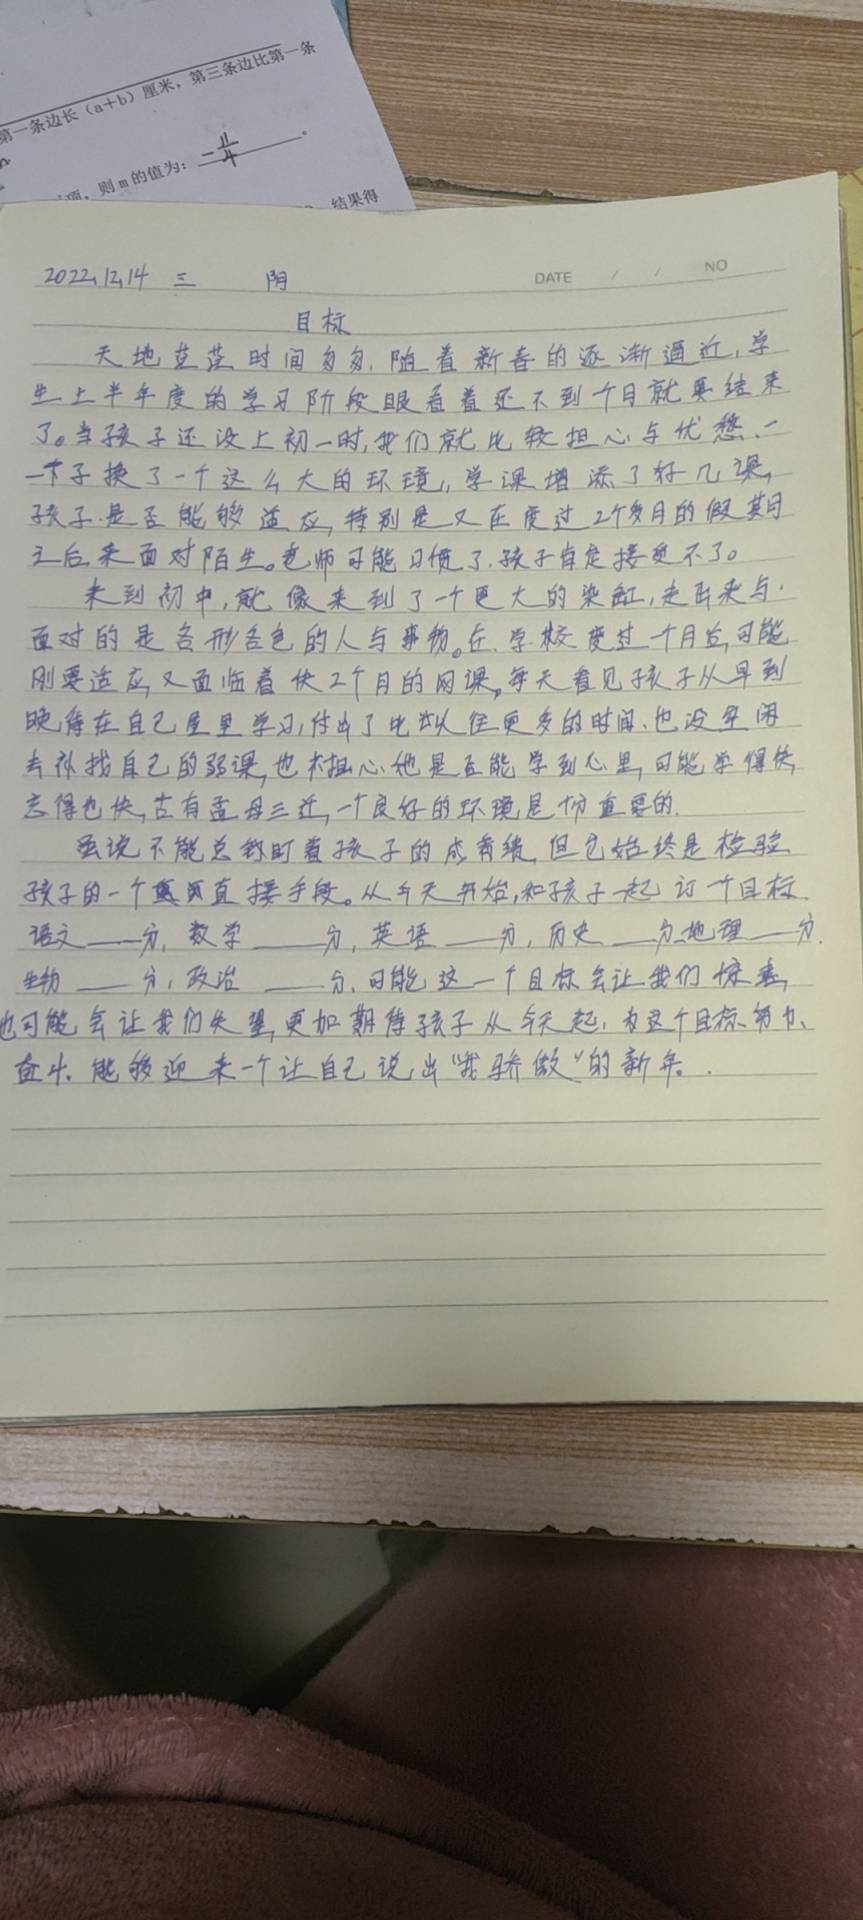 第一条边长（a+b）厘米，第三条边比第一条
项，则m的值为：-11/4。
结果得
2022.12.14 三 阴
DATE / / NO
目标
天地茫茫时间匆匆，随着新春的逐渐逼近，学
生上半年度的学习阶段眼看着还不到个月就要结束
了。当孩子还没上初一时，我们就比较担心与忧愁，一
下子换了一个这么大的环境，学课增添了好几课，
孩子是否能够适应，特别是又在度过2个多月的假期
之后来面对陌生。老师可能习惯了，孩子肯定接受不了。
来到初中，就像来到了一个更大的染缸，走出来与
面对的是各形各色的人与事物。在学校度过一个月后，可能
刚要适应，又面临着快2个月的网课，每天看见孩子从早到
晚待在自己屋里学习，付出了比以往更多的时间，也没空闲
去补找自己的弱课，也担心她是否能学到心里，可能学得快，
忘得也快，古有孟母三迁，一个良好的环境是十分重要的．
虽说不能总盯着孩子的成绩，但它始终是检验
孩子的一个直接手段。从今天开始，和孩子一起订个目标．
语文——分，数学——分，英语——分，历史——分、地理——分．
生物——分，政治——分．可能这一个目标会让我们惊喜，
也可能会让我们失望，更加期待孩子从今天起，为这个目标努力、
奋斗．能够迎来一个让自己说出“我骄傲”的新年。